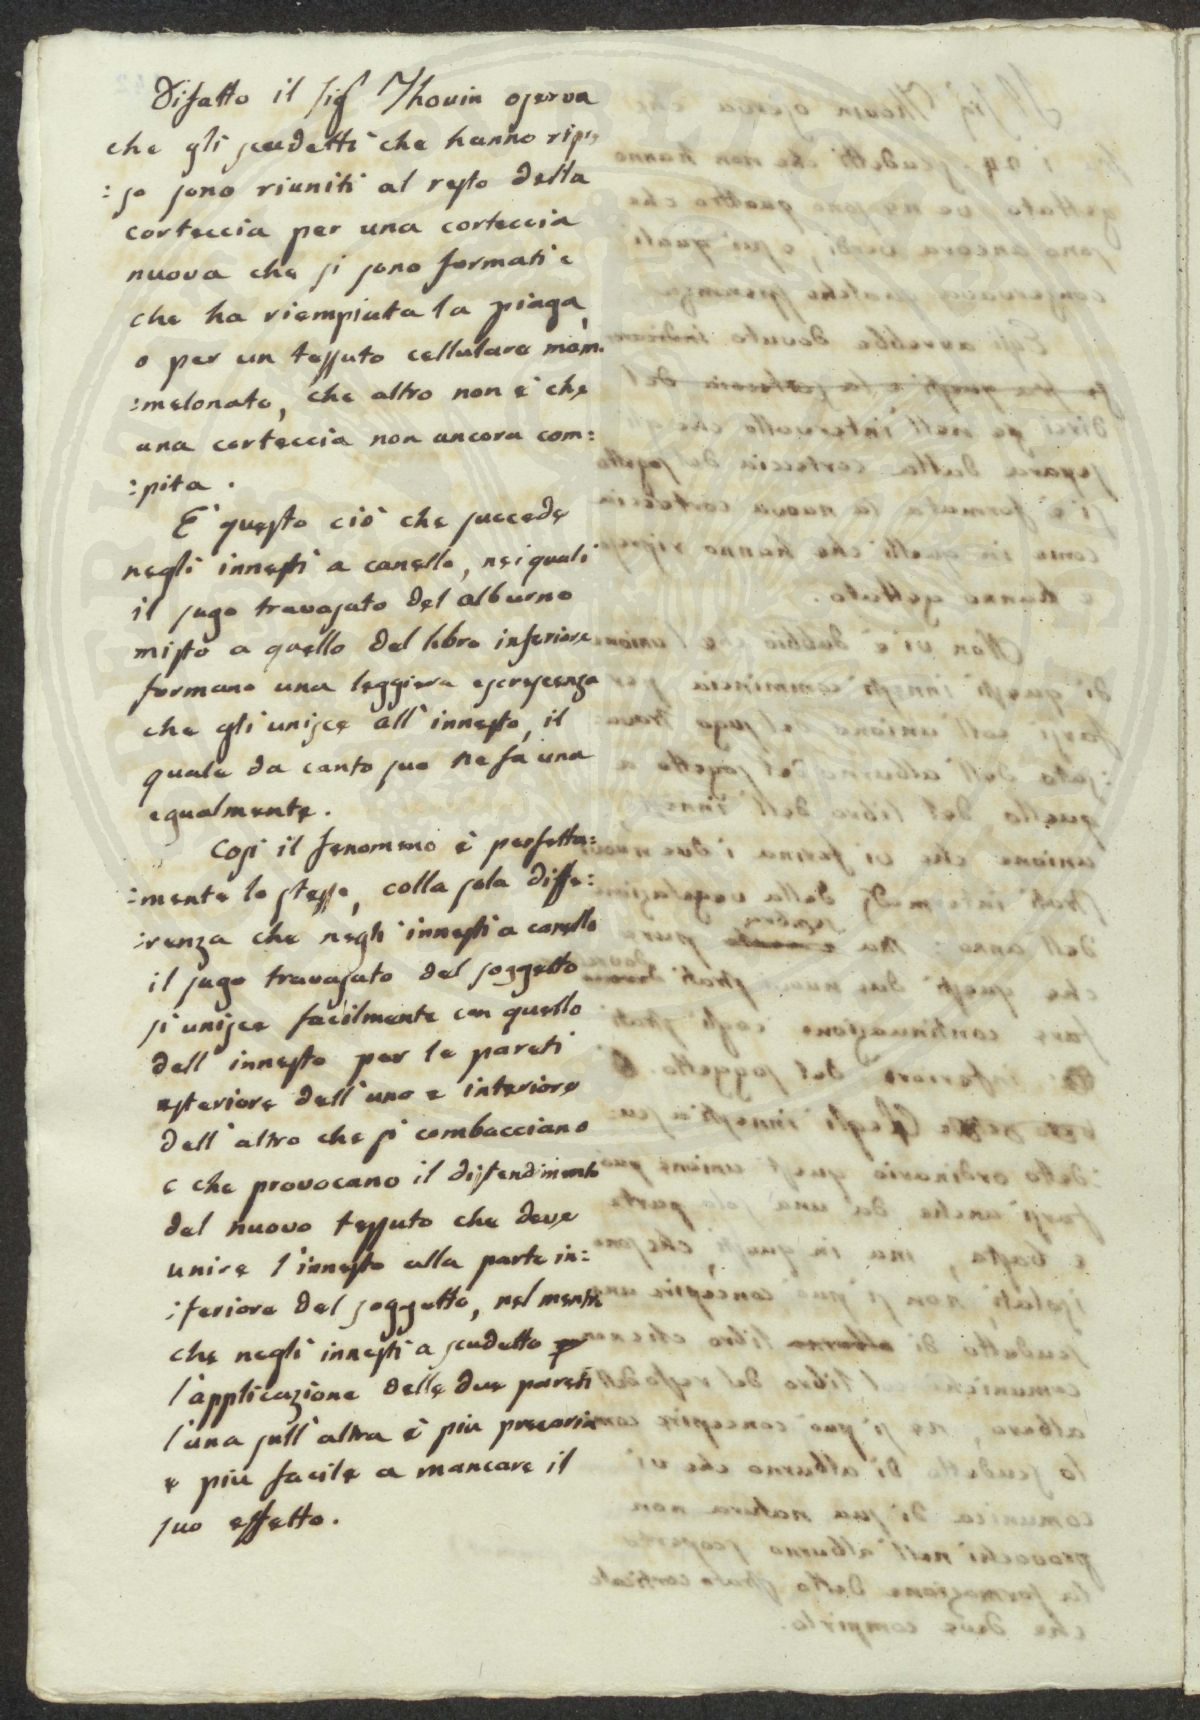 Difatto il Sig.r Thouin osserva
che gli scudetti che hanno ripre
:so sono riuniti al resto della
corteccia per una corteccia
nuova che si sono formati e
che ha riempiuta la piaga,
o per un tessuto cellulare mam:
:melonato, che altro non è che
una corteccia non ancora com:
:pita.
E' questo ciò che succede
negli innesti a canello, nei quali
il sugo travasato del alburno
misto a quello del libro inferiore
formano una leggiera escrescenza
che gli unisce all' innesto, il
quale da canto suo ne fà una
egualmente.
Così il fenomeno è perfetta:
:mente lo stesso, colla sola diffe:
:renza che negli innesti a canello
il sugo travasato del soggetto
si unisce facilmente con quello
dell' innesto per le pareti
esteriore dell' uno e interiore
dell' altro che si combacciano
e che provocano il distendimento
del nuovo tessuto che deve
unire l'innesto alla parte in:
:feriore del soggetto, nel mentre
che negli innesti a scudetto
l'applicazione delle due pareti
l'una sull' altra è più precaria
e più facile a mancare il
suo effetto.